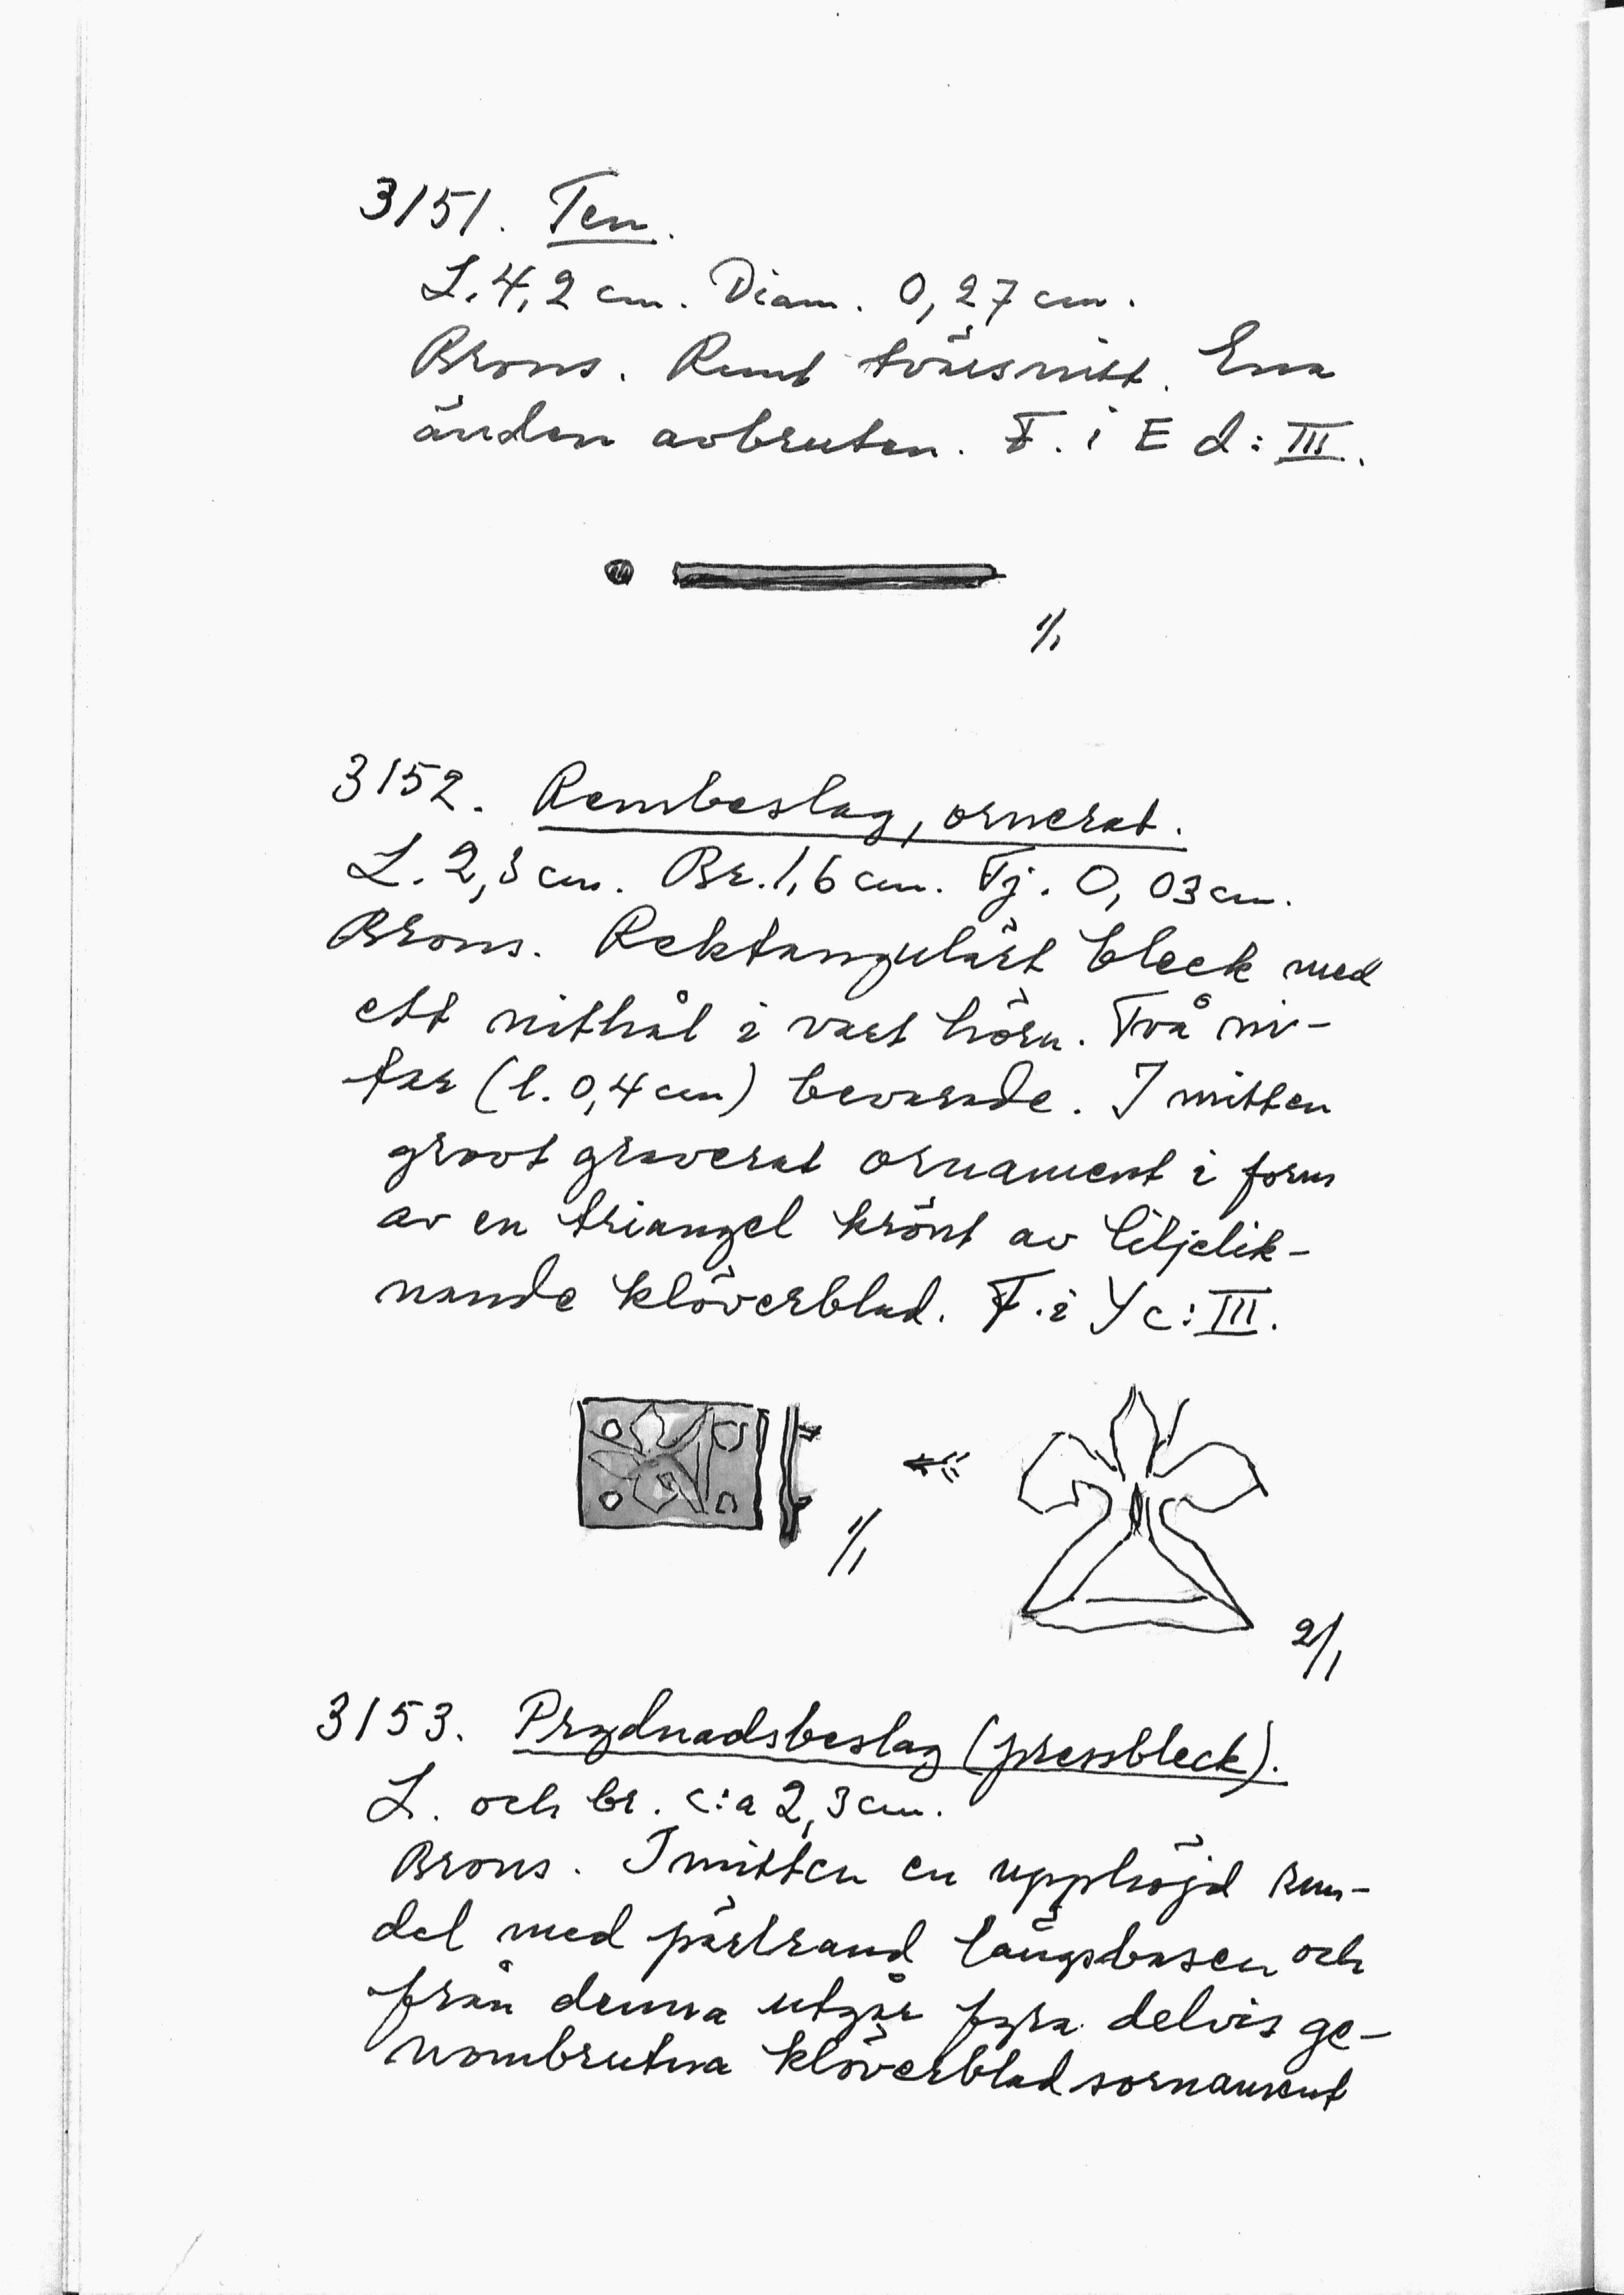 3151. Ten.
L. 4,2 cm. Diam. 0,27 cm.
Brons. Runt tvärsnitt. Ena
änden avbruten. F. i E d: III.
1/1
3152. Rembeslag, ornerat.
L. 2,3 cm. Br. 1,6 cm. Tj. 0,03 cm.
Brons. Rektangulärt bleck med
ett nithål i vart hörn. Två ni-
tar (l. 0,4 cm) bevarade. I mitten
grovt graverat ornament i form
av en triangel krönt av liljelik-
nande klöverblad. F. i Y c: III.
1/1
2/1
3153. Prydnadsbeslag (pressbleck).
L. och br. c:a 2,3 cm.
Brons. I mitten en upphöjd run-
del med pärlrand längs basen och
från denna utgår fyra delvis ge-
nombrutna klöverbladsornament